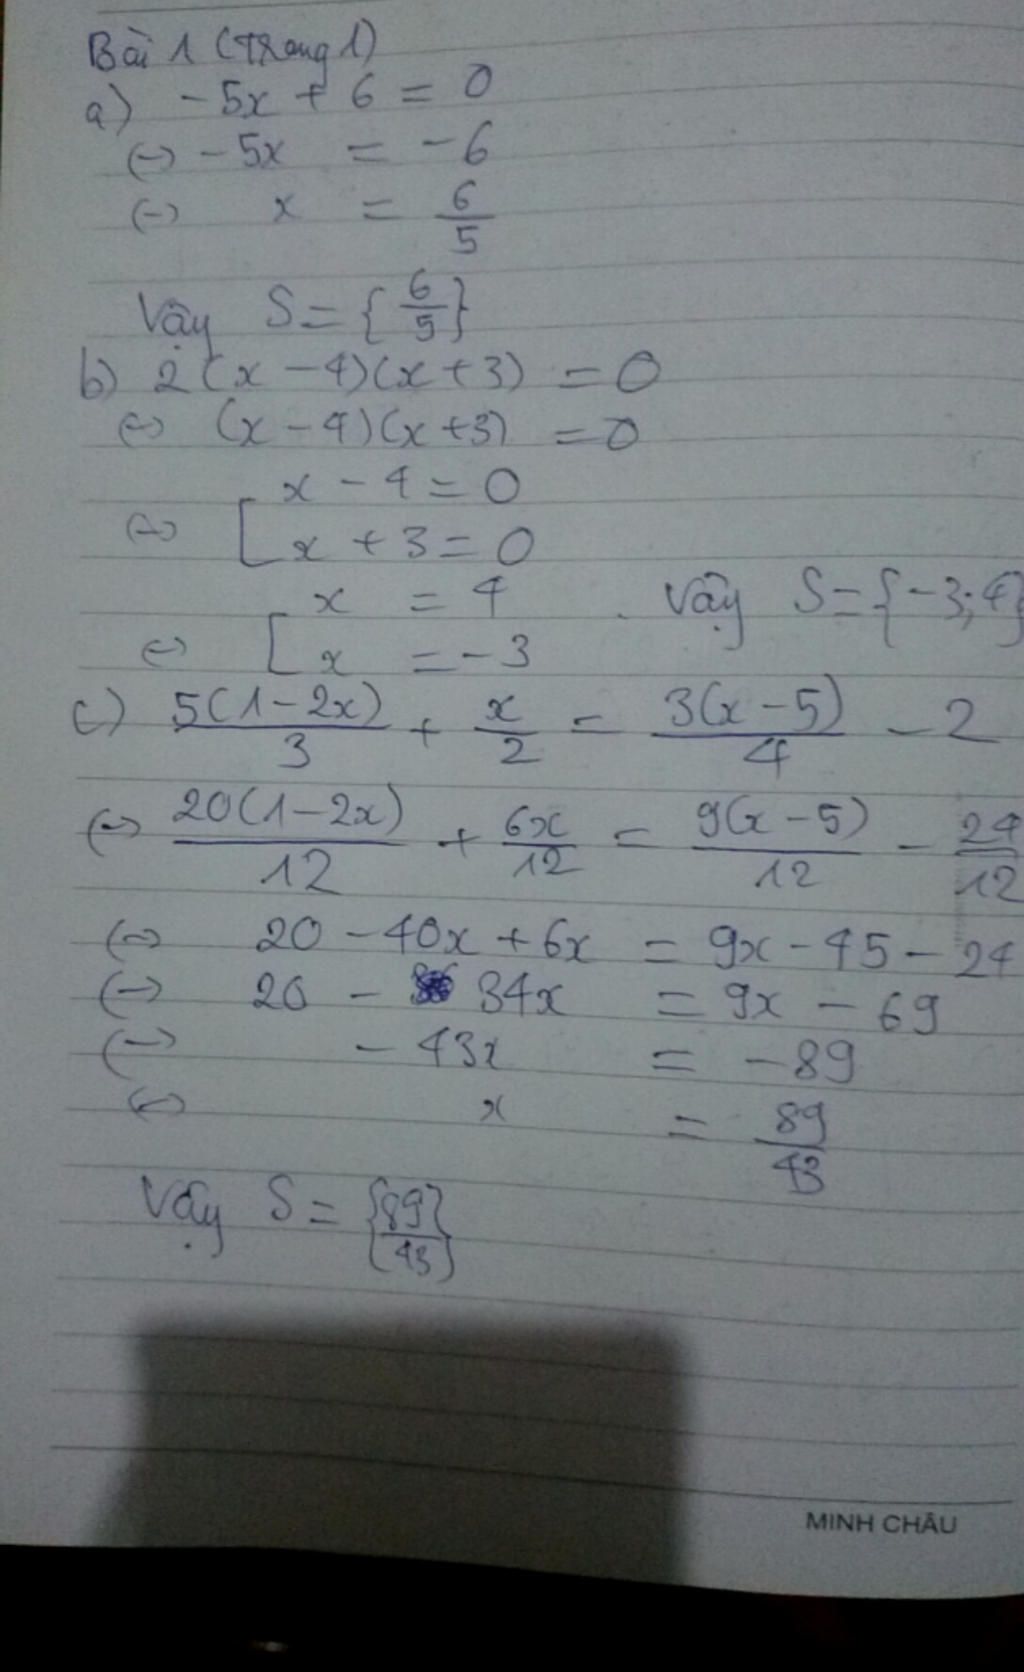 Bài 1 (Trang 1)
a) -5x + 6 = 0
(=) -5x = -6
(=) x = 6/5
Vậy S = {6/5}
b) 2(x - 4)(x + 3) = 0
(=) (x - 4)(x + 3) = 0
(=) [ x - 4 = 0
x + 3 = 0
(=) [ x = 4
x = -3
Vậy S = {-3; 4}
c) 5(1 - 2x)/3 + x/2 = 3(x - 5)/4 - 2
(=) 20(1 - 2x)/12 + 6x/12 = 9(x - 5)/12 - 24/12
(=) 20 - 40x + 6x = 9x - 45 - 24
(=) 20 - 34x = 9x - 69
(=) - 43x = - 89
(=) x = 89/43
Vậy S = {89/43}
MINH CHÂU